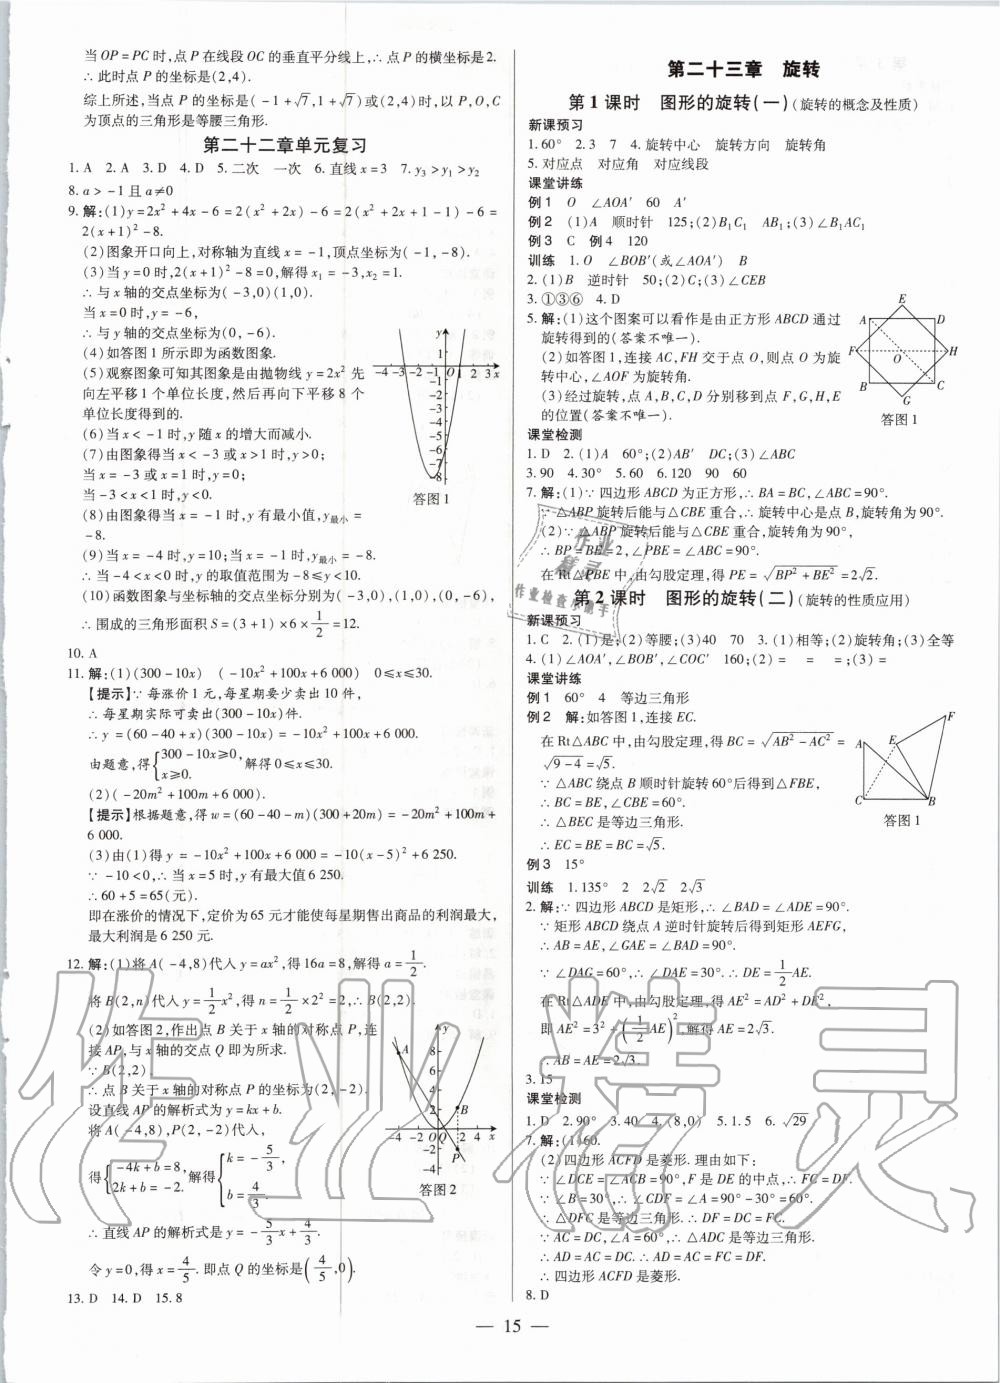 当OP=PC时,点P在线段OC的垂直平分线上,∴点P的横坐标是2.
∴此时点P的坐标是(2,4).
综上所述,当点P的坐标是(-1+√7,1+√7)或(2,4)时,以P,O,C
为顶点的三角形是等腰三角形.
第二十二章单元复习
1. A 2. A 3. D 4. D 5. 二次 一次 6. 直线x=3 7. y₃>y₁>y₂
8. a>-1且a≠0
9. 解:(1)y=2x²+4x-6=2(x²+2x)-6=2(x²+2x+1-1)-6=
2(x+1)²-8.
(2)图象开口向上,对称轴为直线x=-1,顶点坐标为(-1,-8).
(3)当y=0时,2(x+1)²-8=0,解得x₁=-3,x₂=1.
∴与x轴的交点坐标为(-3,0)(1,0).
当x=0时,y=-6,
∴与y轴的交点坐标为(0,-6).
(4)如答图1所示即为函数图象.
(5)观察图象可知其图象是由抛物线y=2x²先
向左平移1个单位长度,然后再向下平移8个
单位长度得到的.
(6)当x<-1时,y随x的增大而减小.
(7)由图象得当x<-3或x>1时,y>0;
当x=-3或x=1时,y=0;
当-3<x<1时,y<0.
(8)由图象得当x=-1时,y有最小值,y最小=
-8.
(9)当x=-4时,y=10;当x=-1时,y最小=-8.
∴当-4<x<0时,y的取值范围为-8≤y<10.
(10)函数图象与坐标轴的交点坐标分别为(-3,0),(1,0),(0,-6),
∴围成的三角形面积S=(3+1)×6×1/2=12.
答图1
10. A
11. 解:(1)(300-10x) (-10x²+100x+6 000) 0≤x≤30.
【提示】∵每涨价1元,每星期要少卖出10件,
∴每星期实际可卖出(300-10x)件.
∴y=(60-40+x)(300-10x)=-10x²+100x+6 000.
由题意,得{300-10x≥0, x≥0. 解得0≤x≤30.
(2)(-20m²+100m+6 000).
【提示】根据题意,得w=(60-40-m)(300+20m)=-20m²+100m+
6 000.
(3)由(1)得y=-10x²+100x+6 000=-10(x-5)²+6 250.
∵-10<0,∴当x=5时,y有最大值6 250.
∴60+5=65(元).
即在涨价的情况下,定价为65元才能使每星期售出商品的利润最大,
最大利润是6 250元.
12. 解:(1)将A(-4,8)代入y=ax²,得16a=8,解得a=1/2.
将B(2,n)代入y=1/2x²,得n=1/2×2²=2,∴B(2,2).
(2)如答图2,作出点B关于x轴的对称点P,连
接AP,与x轴的交点Q即为所求.
∵B(2,2)
∴点B关于x轴的对称点P的坐标为(2,-2).
设直线AP的解析式为y=kx+b.
将A(-4,8),P(2,-2)代入,
得{-4k+b=8, 2k+b=-2. 解得{k=-5/3, b=4/3.
∴直线AP的解析式是y=-5/3x+4/3.
令y=0,得x=4/5. 即点Q的坐标是(4/5,0).
答图2
13. D 14. D 15. 8
第二十三章 旋转
第1课时 图形的旋转(一)(旋转的概念及性质)
新课预习
1. 60° 2. 3 7 4. 旋转中心 旋转方向 旋转角
5. 对应点 对应角 对应线段
课堂讲练
例1 O ∠AOA′ 60 A′
例2 (1)A 顺时针 125;(2)B₁C₁ AB₁;(3)∠B₁AC₁
例3 C 例4 120
训练 1. O ∠BOB′(或∠AOA′) B
2. (1)B 逆时针 50;(2)C;(3)∠CEB
3. ①③⑥ 4. D
5. 解:(1)这个图案可以看作是由正方形ABCD通过
旋转得到的(答案不唯一).
(2)如答图1,连接AC,FH交于点O,则点O为旋
转中心,∠AOF为旋转角.
(3)经过旋转,点A,B,C,D分别移到点F,G,H,E
的位置(答案不唯一).
答图1
课堂检测
1. D 2. (1)A 60°;(2)AB′ DC;(3)>
3. 90 4. 30° 5. 60 6. 120 90 60
7. 解:(1)∵四边形ABCD为正方形,∴BA=BC,∠ABC=90°.
∵△ABP旋转后能与△CBE重合,∴旋转中心是点B,旋转角为90°.
(2)∵△ABP旋转后能与△CBE重合,旋转角为90°,
∴BP=BE=2,∠PBE=∠ABC=90°.
在Rt△PBE中,由勾股定理,得PE=√(BP²+BE²)=2√2.
第2课时 图形的旋转(二)(旋转的性质应用)
新课预习
1. C 2. (1)是;(2)等腰;(3)40 70 3. (1)相等;(2)旋转角;(3)全等
4. (1)∠AOA′,∠BOB′,∠COC′ 160;(2)= = =;(3)=
课堂讲练
例1 60° 4 等边三角形
例2 解:如答图1,连接EC.
在Rt△ABC中,由勾股定理,得BC=√(AB²-AC²)=
√(9-4)=√5.
∵△ABC绕点B顺时针旋转60°后得到△FBE,
∴BC=BE,∠CBE=60°.
∴△BEC是等边三角形.
∴EC=BE=BC=√5.
答图1
例3 15°
训练 1. 135° 2 2√2 2√3
2. 解:∵四边形ABCD是矩形,∴∠BAD=∠ADE=90°.
∵矩形ABCD绕点A逆时针旋转后得到矩形AEFG,
∴AB=AE,∠GAE=∠BAD=90°.
∵∠DAG=60°,∴∠DAE=30°.∴DE=1/2AE.
在Rt△ADE中,由勾股定理,得AE²=AD²+DE²,
即AE²=3²+(1/2AE)²,解得AE=2√3.
∴AB=AE=2√3.
3. 15
课堂检测
1. D 2. 90° 3. 40 4. (8,0) 5. 1.5 6. √29
7. 解:(1)60.
(2)四边形ACFD是菱形. 理由如下:
∵∠DCE=∠ACB=90°,F是DE的中点,∴FC=DF.
∵∠B=30°,∴∠CDF=∠A=90°-30°=60°.
∴△DFC是等边三角形.∴DF=DC=FC.
∵AC=DC,∠A=60°,∴△ADC是等边三角形.
∴AD=AC=DC.∴AD=AC=FC=DF.
∴四边形ACFD是菱形.
8. D
— 15 —
作业精灵
作业检查小助手
作业精灵